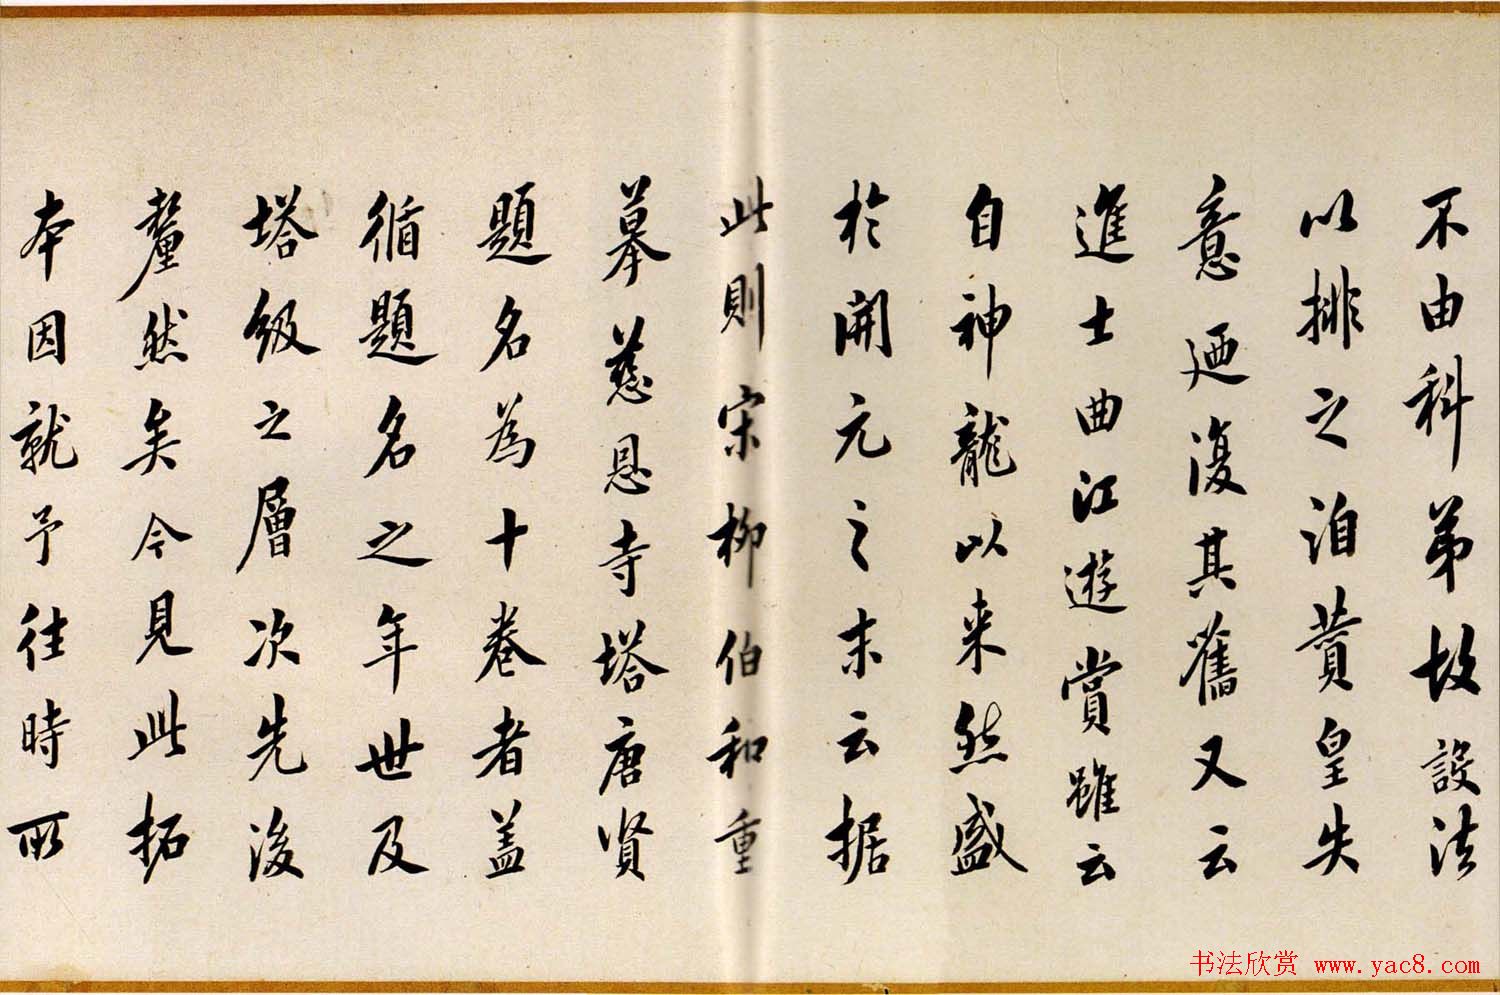 不由科弟故設法
以排之洎賁皇失
意迺復其舊又云
進士曲江遊賞雖云
自神龍以来然盛
於開元之末云据
此則宋柳伯和重
摹慈恩寺塔唐賢
題名為十卷者盖
循題名之年世及
塔級之層次先後
釐然矣今見此拓
本因就予往時所
书法欣赏 www.yac8.com